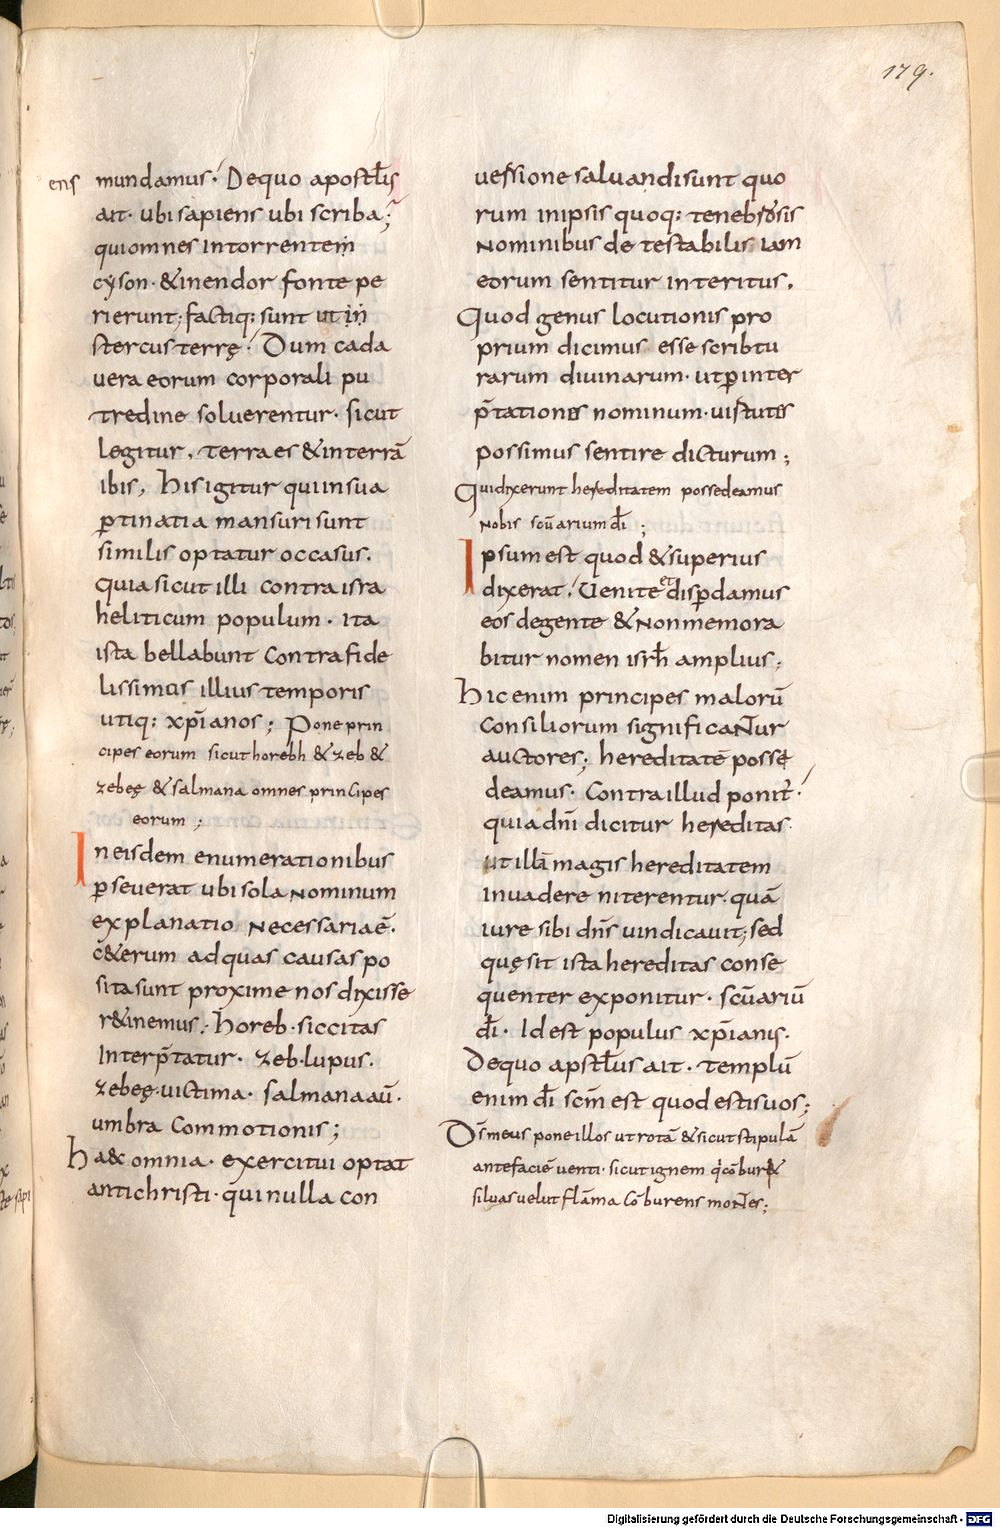 179.
ens mundamus· Dequo apostl̄is
ait· ubi sapiens ubi scriba;
quiomnes intorrentem
cyson· &inendor fonte pe
rierunt; factiq: sunt ut in
stercus terrę· Dum cada
uera eorum corporali pu
tredine soluerentur· sicut
legitur, terra es &interrā
ibis, hisigitur quiinsua
ꝑtinatia mansuri sunt
similis optatur occasus.
quia sicut illi contra isra
heliticum populum· ita
ista bellabunt contra fide
lissimus illius temporis
utiq: xp̄ianos; Pone prin
cipes eorum sicut horebh & zeb &
zebeę & salmana omnes principes
eorum;
In eisdem enumerationibus
ꝑseuerat ubi sola nominum
explanatio necessariaē.
c̄&erum ad quas causas po
sita sunt proxime nos dixisse
r&inemus· horeb· siccitas
Interp̄tatur· zeb· lupus.
zebeę· uictima· salmana aū·
umbra commotionis;
ha&c omnia· exercitui optat
antichristi· qui nulla con
uersione saluandi sunt quo
rum inipsis quoq: tenebrosis
nominibus detestabilis iam
eorum sentitur interitus.
Quod genus locutionis pro
prium dicimus esse scribtu
rarum diuinarum· utꝑinter
p̄tationes nominum· uistutes
possimus sentire dicturum;
Qui dixerunt hereditatem possedeamus
nobis scūarium dī;
Ipsum est quod &superius
dixerat, Uenite et disꝑdamus
eos degente & non memora
bitur nomen isrh̄ amplius;
Hic enim principes malorū
consiliorum significantur
auctores; hereditatē posse
deamus· Contra illud ponit̄·
quia dn̄i dicitur hereditas·
ut illā magis hereditatem
inuadere niterentur· quā
iure sibi dn̄s uindicauit; sed
quę sit ista hereditas conse
quenter exponitur· scūariū
dī· Id est populus xp̄ianis.
Dequo apstl̄us ait· templū
enim dī scm̄ est quod estis uos;
Ds̄ meus pone illos ut rotā & sicut stipulā
ante faciē uenti· sicut ignem q̄ cōburit
siluas uelut flāma cōburens montes;
Digitalisierung gefördert durch die Deutsche Forschungsgemeinschaft - DFG